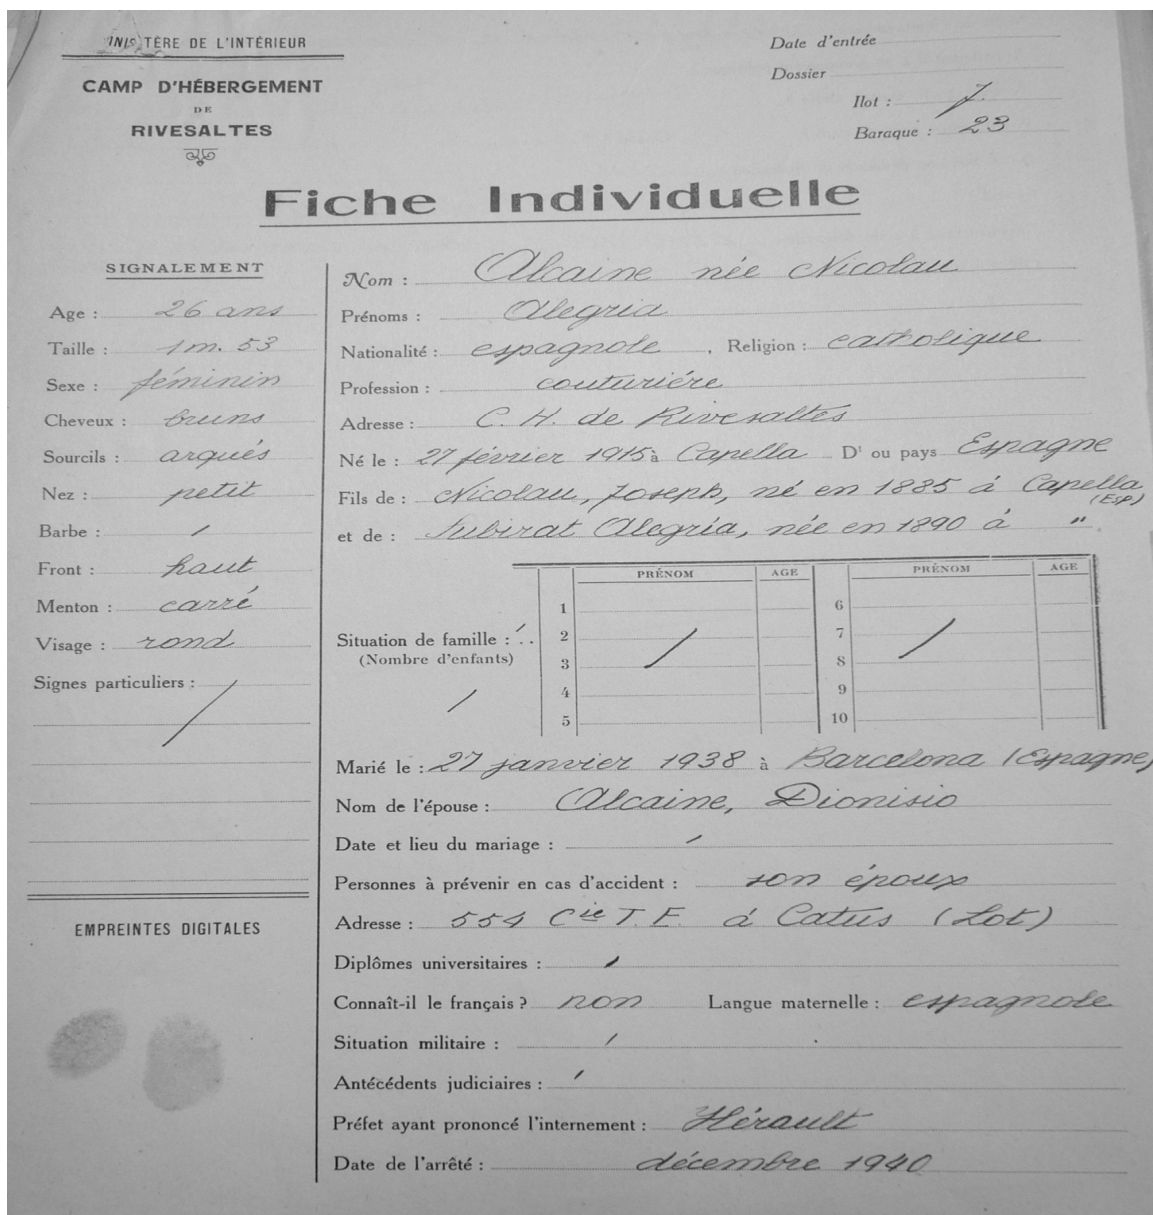 INISTÈRE DE L'INTÉRIEUR
CAMP D'HÉBERGEMENT
DE
RIVESALTES
Date d'entrée
Dossier
Ilot : 7.
Baraque : 23
Fiche Individuelle
SIGNALEMENT
Age : 26 ans
Taille : 1m. 53
Sexe : féminin
Cheveux : bruns
Sourcils : arqués
Nez : petit
Barbe : /
Front : haut
Menton : carré
Visage : rond
Signes particuliers : /
EMPREINTES DIGITALES
Nom : Alcaine née Nicolau
Prénoms : Alegria
Nationalité : espagnole , Religion : catholique
Profession : couturiére
Adresse : C. H. de Rivesaltes
Né le : 27 février 1915 à Capella D' ou pays Espagne
Fils de : Nicolau, Joseph, né en 1885 á Capella (Esp)
et de : Subirat Alegria, née en 1890 á "
PRÉNOM AGE PRÉNOM AGE
1 6
2 7
3 8
4 9
5 10
Situation de famille :
(Nombre d'enfants)
/
Marié le : 27 janvier 1938 à Barcelona (Espagne)
Nom de l'épouse : Alcaine, Dionisio
Date et lieu du mariage : /
Personnes à prévenir en cas d'accident : son époux
Adresse : 554 Cie T. E. á Catus (Lot)
Diplômes universitaires : /
Connaît-il le français ? non Langue maternelle : espagnole
Situation militaire : /
Antécédents judiciaires : /
Préfet ayant prononcé l'internement : Hérault
Date de l'arrêté : décembre 1940